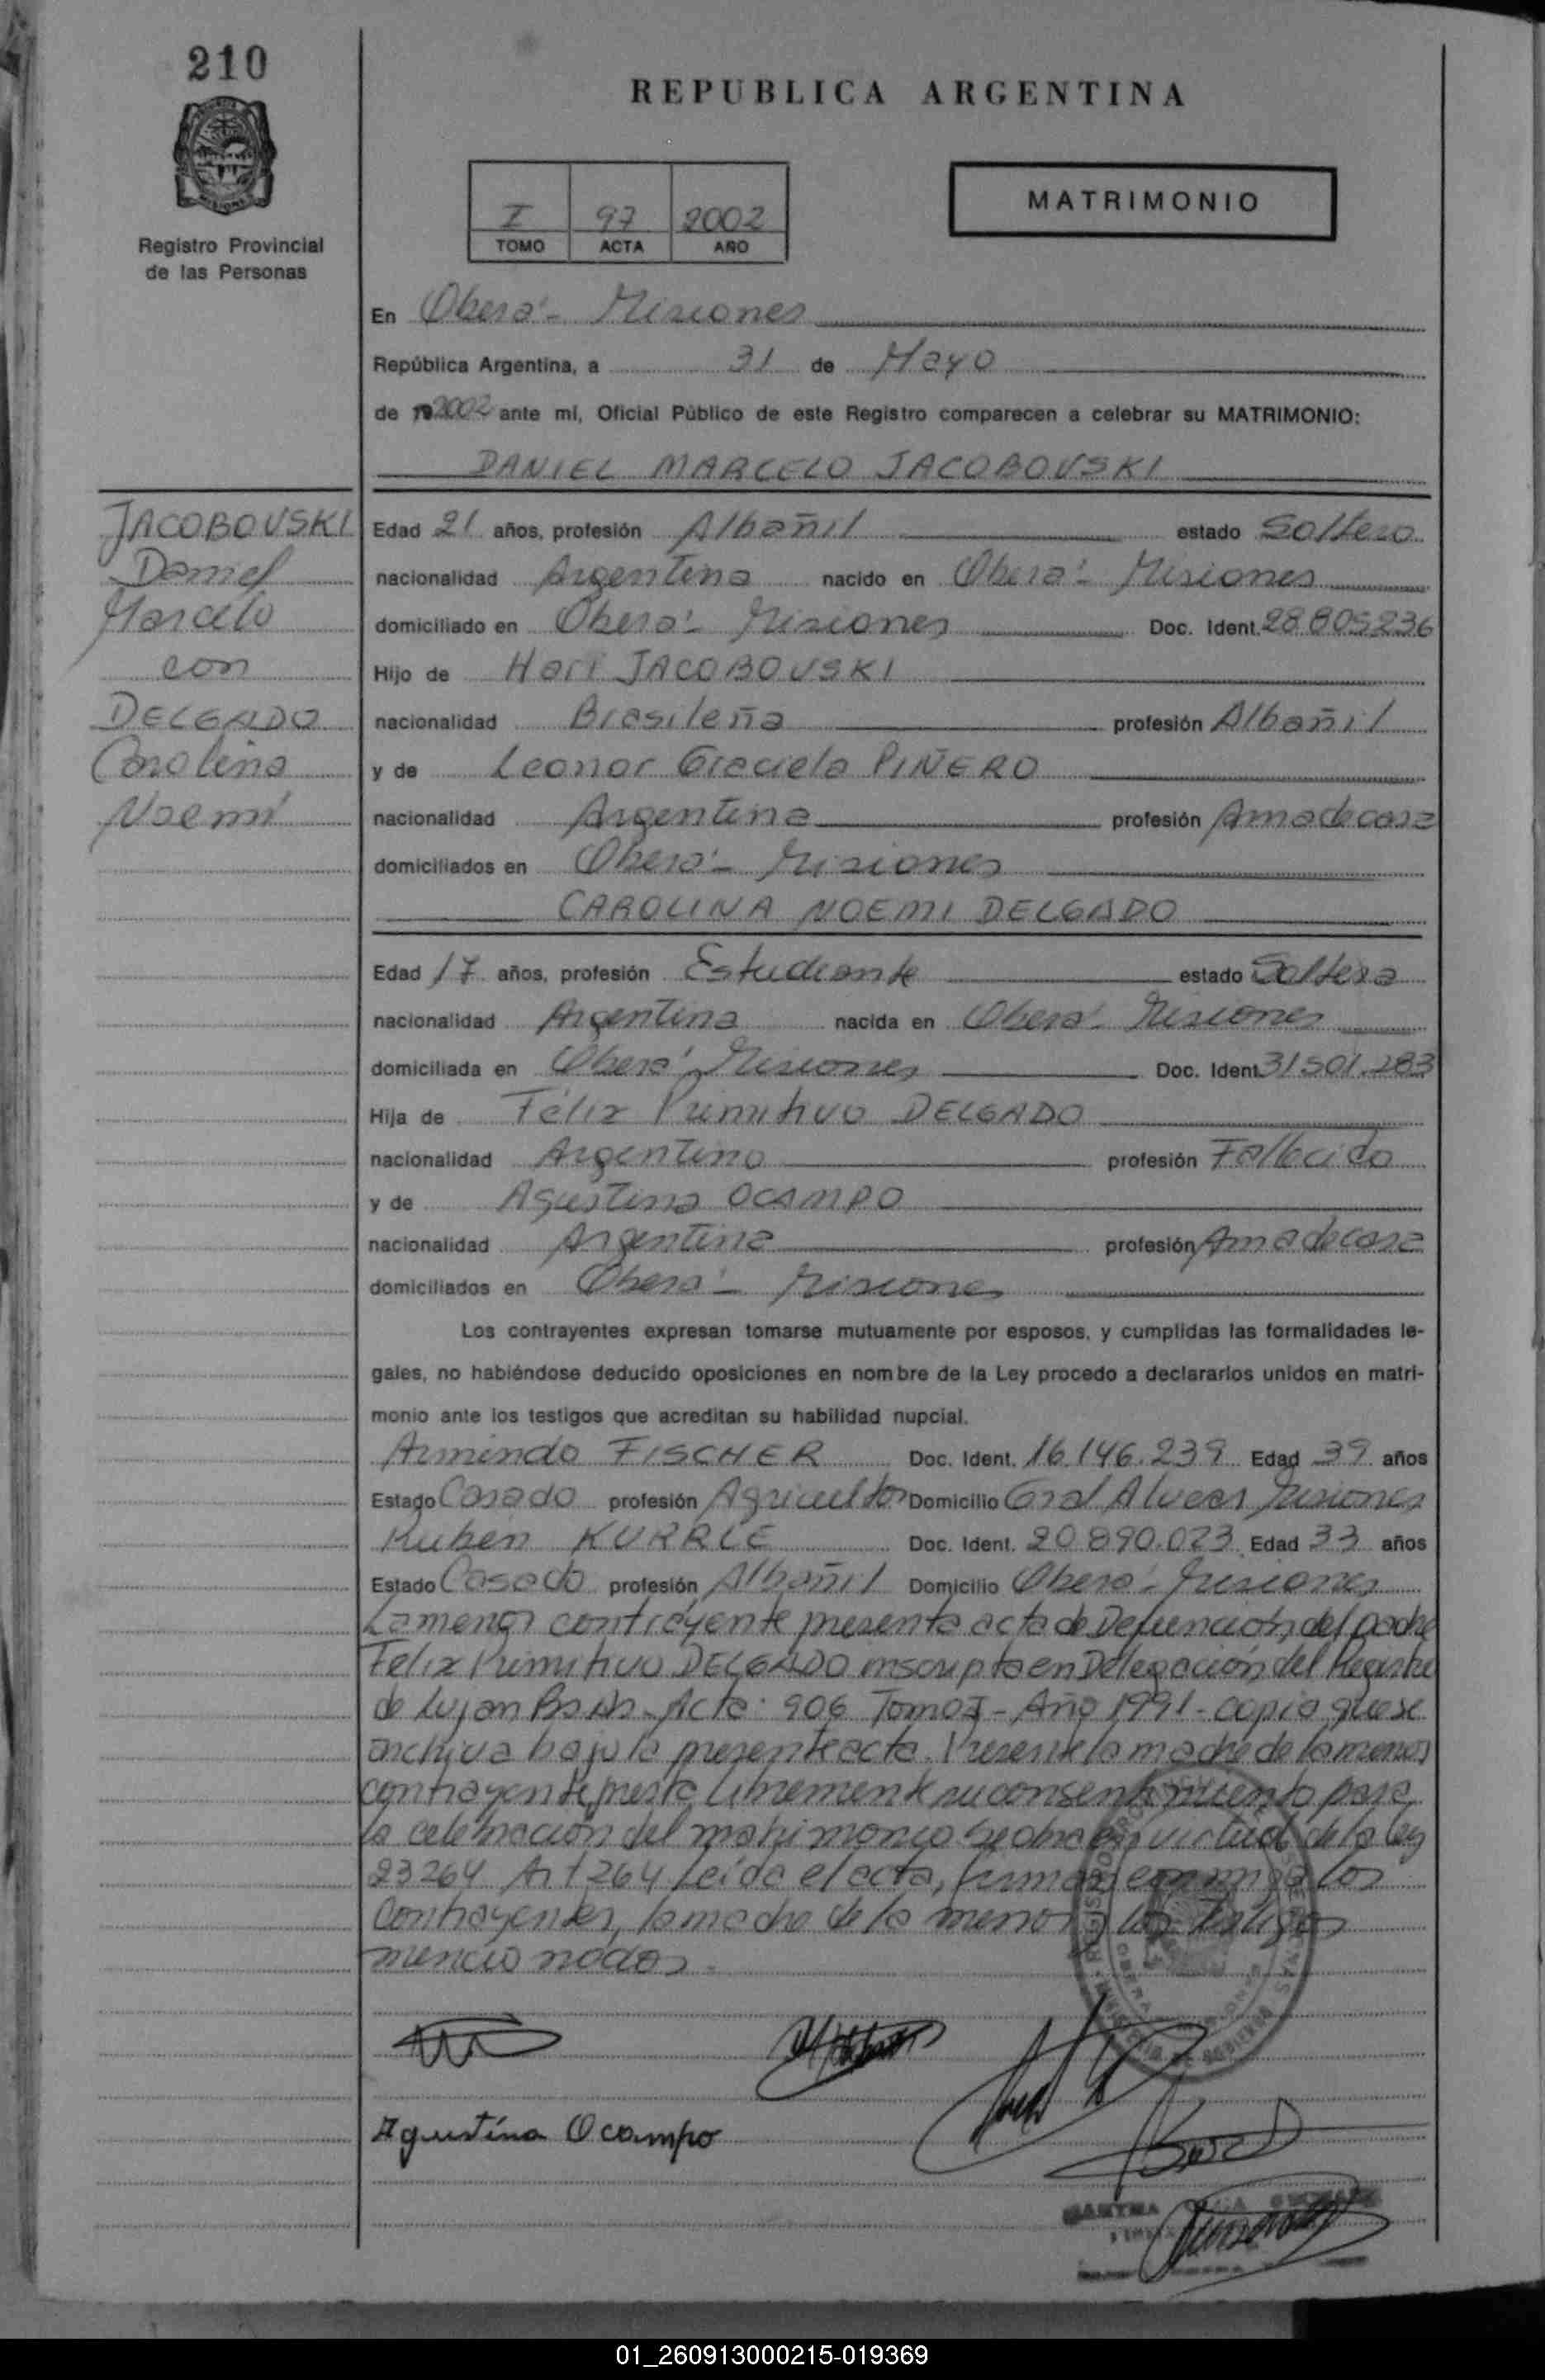 210
REPUBLICA ARGENTINA
Registro Provincial
de las Personas
I 97 2002
TOMO ACTA AÑO
MATRIMONIO
En Oberá - Misiones
República Argentina, a 31 de Mayo
de 19 2002 ante mí, Oficial Público de este Registro comparecen a celebrar su MATRIMONIO:
DANIEL MARCELO JACOBOVSKI
JACOBOVSKI
Daniel
Marcelo
con
DELGADO
Carolina
Noemí
Edad 21 años, profesión Albañil estado Soltero
nacionalidad Argentina nacido en Oberá - Misiones
domiciliado en Oberá - Misiones Doc. Ident. 28.805.236
Hijo de Hari JACOBOVSKI
nacionalidad Brasileña profesión Albañil
y de Leonor Graciela PIÑERO
nacionalidad Argentina profesión Ama de casa
domiciliados en Oberá - Misiones
CAROLINA NOEMI DELGADO
Edad 17 años, profesión Estudiante estado Soltera
nacionalidad Argentina nacida en Oberá - Misiones
domiciliada en Oberá - Misiones Doc. Ident. 31.501.283
Hija de Félix Primitivo DELGADO
nacionalidad Argentino profesión Fallecido
y de Agustina OCAMPO
nacionalidad Argentina profesión Ama de casa
domiciliados en Oberá - Misiones
Los contrayentes expresan tomarse mutuamente por esposos, y cumplidas las formalidades le-
gales, no habiéndose deducido oposiciones en nombre de la Ley procedo a declararlos unidos en matri-
monio ante los testigos que acreditan su habilidad nupcial.
Armindo FISCHER Doc. Ident. 16.146.239 Edad 39 años
Estado Casado profesión Agricultor Domicilio Gral Alvear Misiones
Ruben KURRLE Doc. Ident. 20.890.023 Edad 33 años
Estado Casado profesión Albañil Domicilio Oberá - Misiones
La menor contrayente presenta acta de Defunción del padre
Felix Primitivo DELGADO inscripta en Delegación del Registro
de Lujan Bs As - Acta: 906 Tomo I - Año 1991 - copia que se
archiva bajo la presente acta. Presente la madre de la menor
contrayente presta su consentimiento para
la celebración del matrimonio en virtud de la ley
23264 Art 264 Leída el acta, firman conmigo los
Contrayentes, la madre de la menor y los testigos
mencionados.
Agustína Ocampo
01_260913000215-019369